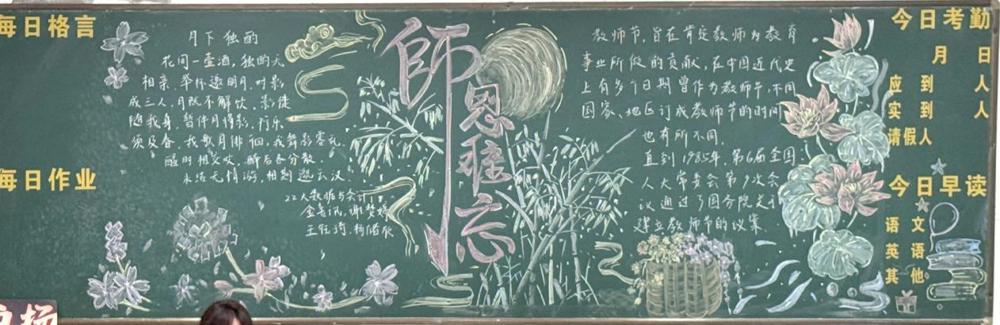 每日格言
每日作业
月下独酌
花间一壶酒,独酌无
相亲,举杯邀明月,对影
成三人,月既不解饮,影徒
随我身,暂伴月将影,行乐
须及春,我歌月徘徊,我舞影零乱,
醒时相交欢,醉后各分散,
永结无情游,相期邈云汉。
22大数据与会计
師恩难忘
教师节,旨在肯定教师为教育
事业所做的贡献,在中国近代史
上有多个日期曾作为教师节,不同
国家、地区订成教师节的时间
也有所不同.
直到1985年,第6届全国
人大常委会第9次会
议通过了国务院关于
建立教师节的议案.
今日考勤
月 日
应到 人
实到 人
请假人
今日早读
语文
英语
其他